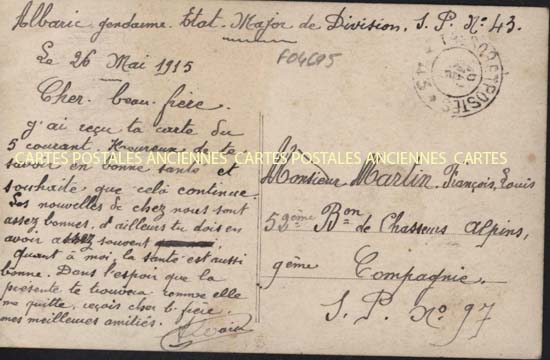 Albaric gendarme. Etat. Major de Division. S. P. No 43.
F04695
Le 26 Mai 1915
Cher. beau. frère.
j'ai reçu ta carte du
5 courant. Heureux de te
savoir en bonne santé et
souhaite que celà continue.
Les nouvelles de chez nous sont
assez bonnes. d'ailleurs tu dois en
avoir assez souvent
quant à moi, la santé est aussi
bonne. Dans l'espoir que la
présente te trouvera comme elle
me quitte, reçois cher b. frère.
mes meilleures amitiés.
POSTES
43
CARTES POSTALES ANCIENNES CARTES POSTALES ANCIENNES CARTES POSTALES ANCIENNES
Monsieur Martin, François, Louis
Bon de Chasseurs alpins,
9ème Compagnie.
S. P. No 97